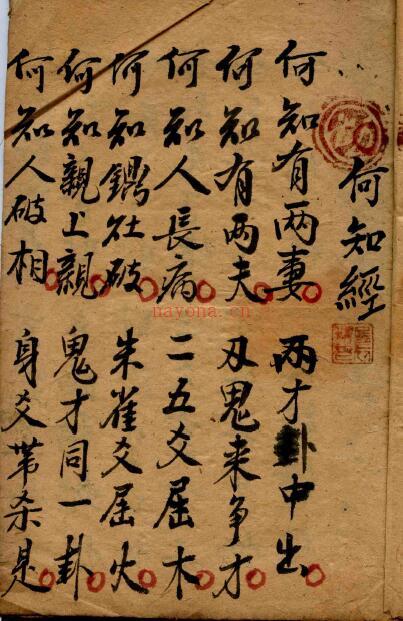 何知經
何知有两妻 两才卦中出
何知有两夫 刃鬼来争才
何知人長病 二五爻屈木
何知鍋灶破 朱雀爻屈火
何知親上親 鬼才同一卦
何知人破相 身爻帯杀是
nayona.cn